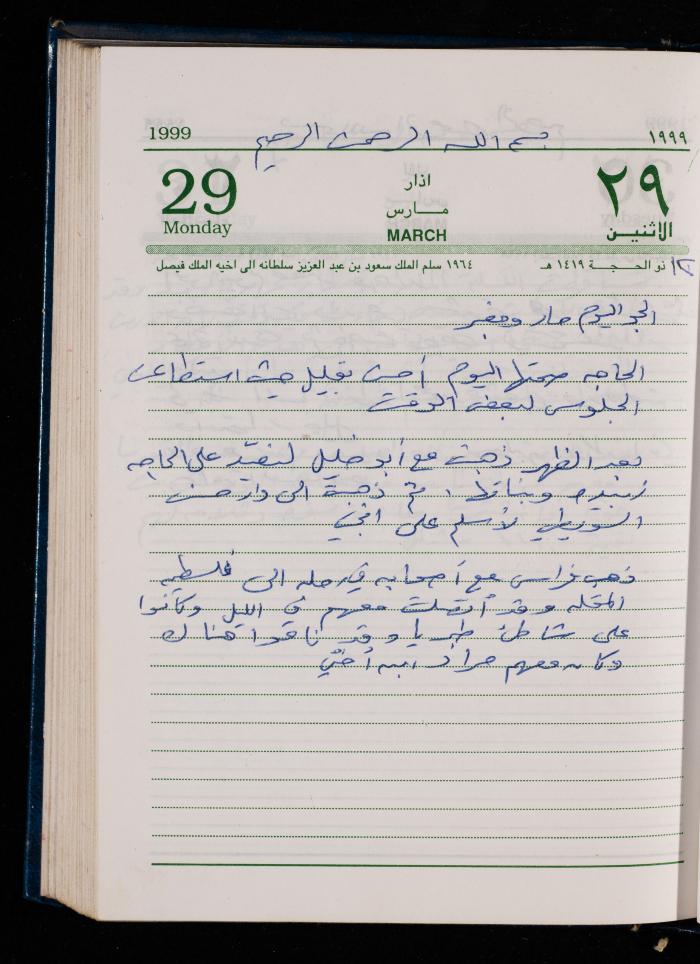 بسم الله الرحمن الرحيم
1999 ١٩٩٩
29 اذار ٢٩
Monday مارس الاثنين
MARCH
١٢ ذو الحجة ١٤١٩ هـ ١٩٦٤ سلم الملك سعود بن عبد العزيز سلطاته الى اخيه الملك فيصل
الجو اليوم حار ومغبر
الحاجه صحتها اليوم أحسن بقليل حيث استطاعت
الجلوس لبعض الوقت
بعد الظهر ذهبت مع أبو خليل لنعيّد على الحاجه
زبيده وبناتها، ثم ذهبت الى دار حسن
السويطي لأسلم على
ذهب فراس مع أصحابه في رحله الى فلسطين
المحتله وقد أتصلت معهم في الليل وكانوا
على شاطئ طبريا وقد ناموا هناك
وكان معهم مراد ابن أختي